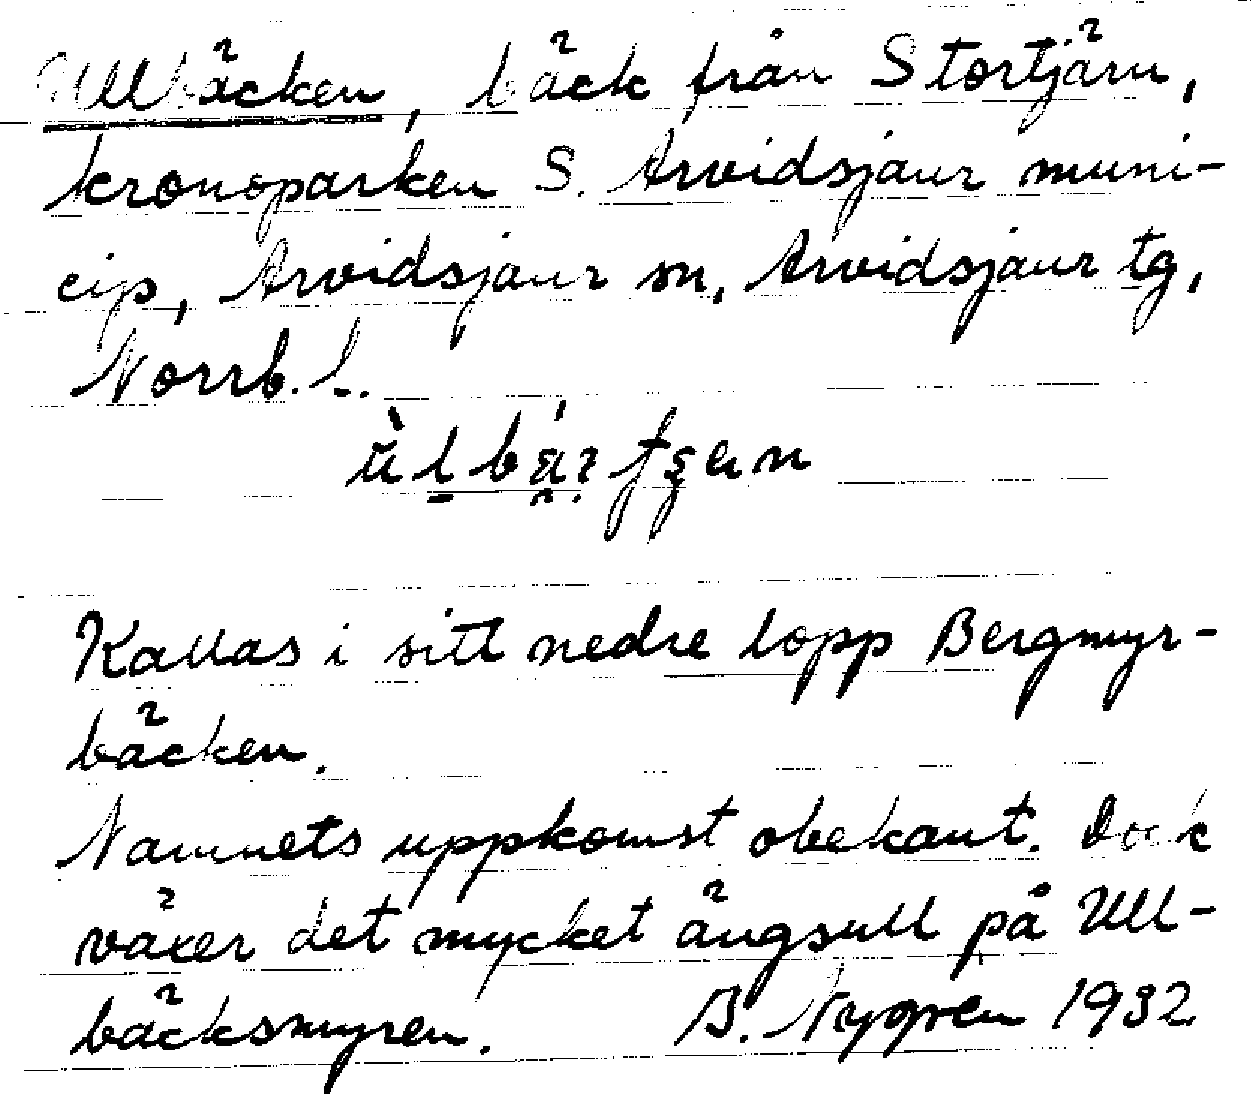 Ullbäcken, bäck från Stortjärn,
kronoparken S. Arvidsjaur muni-
cip, Arvidsjaur sn, Arvidsjaur tg,
Norrb. l.
Kallas i sitt nedre lopp Bergmyr-
bäcken.
Namnets uppkomst obekant. Dock
växer det mycket ängsull på Ull-
bäcksmyren. B. Nygren 1932